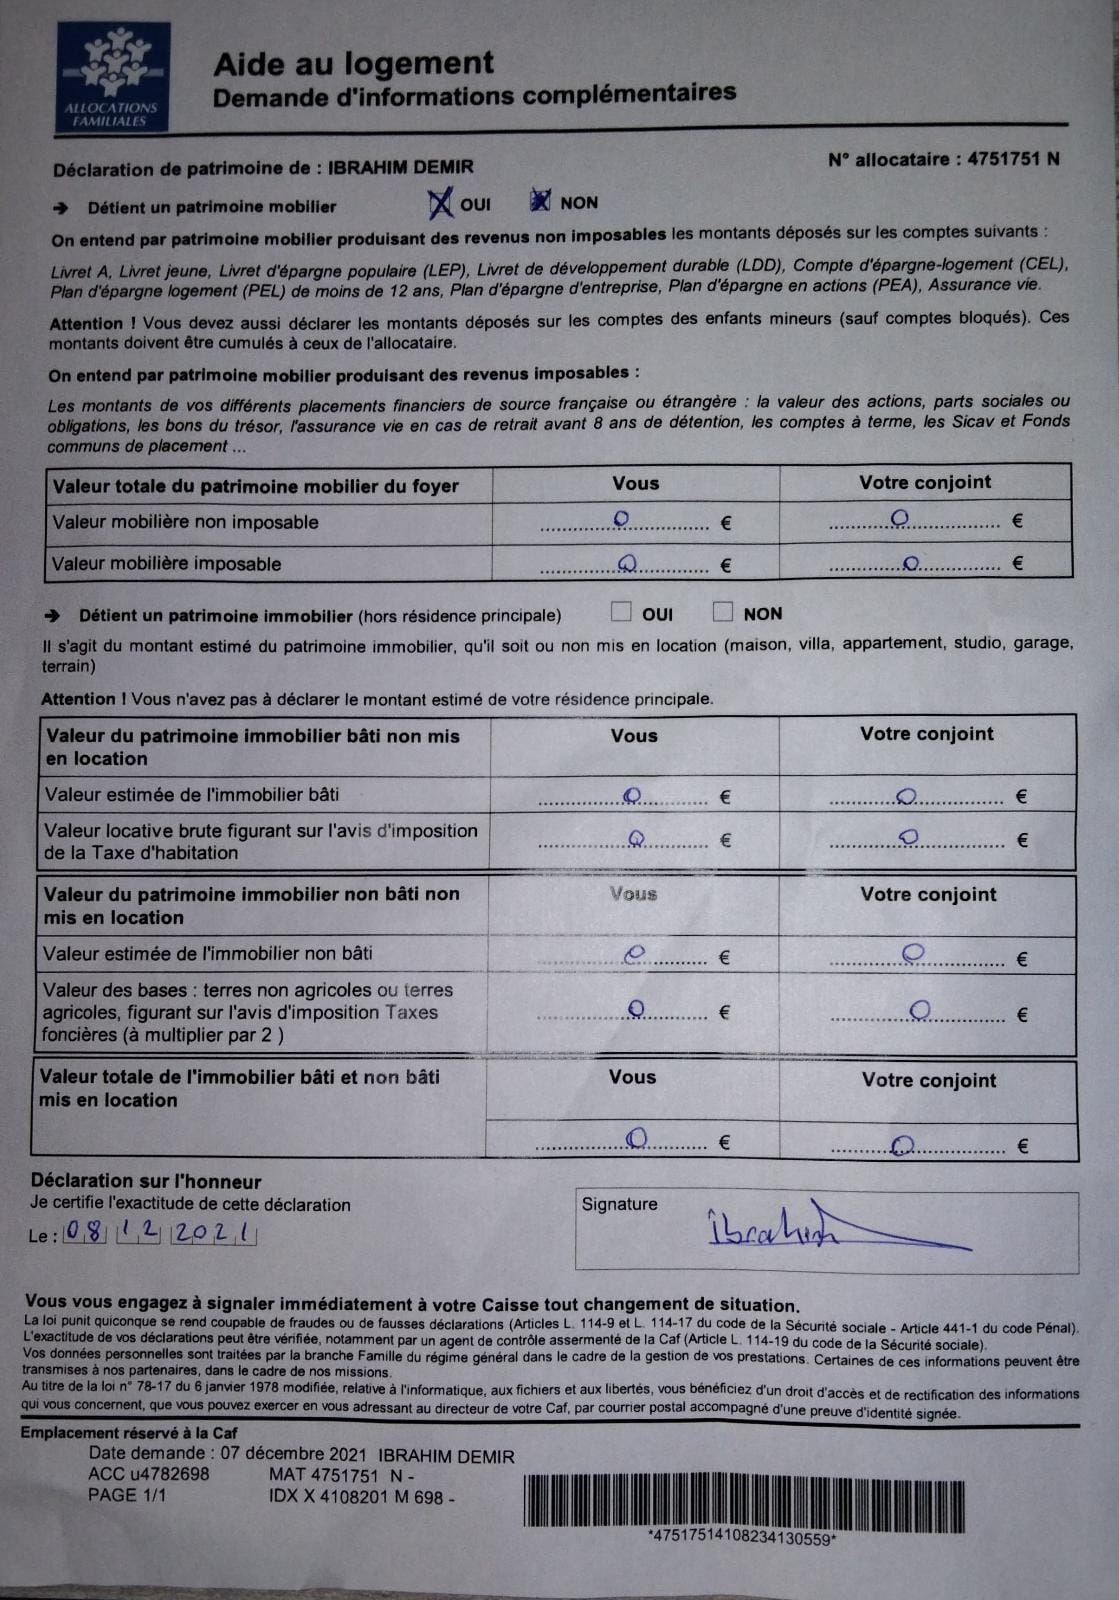 ALLOCATIONS
FAMILIALES
Aide au logement
Demande d'informations complémentaires
Déclaration de patrimoine de : IBRAHIM DEMIR
N° allocataire : 4751751 N
➔ Détient un patrimoine mobilier OUI NON
On entend par patrimoine mobilier produisant des revenus non imposables les montants déposés sur les comptes suivants :
Livret A, Livret jeune, Livret d'épargne populaire (LEP), Livret de développement durable (LDD), Compte d'épargne-logement (CEL),
Plan d'épargne logement (PEL) de moins de 12 ans, Plan d'épargne d'entreprise, Plan d'épargne en actions (PEA), Assurance vie.
Attention ! Vous devez aussi déclarer les montants déposés sur les comptes des enfants mineurs (sauf comptes bloqués). Ces
montants doivent être cumulés à ceux de l'allocataire.
On entend par patrimoine mobilier produisant des revenus imposables :
Les montants de vos différents placements financiers de source française ou étrangère : la valeur des actions, parts sociales ou
obligations, les bons du trésor, l'assurance vie en cas de retrait avant 8 ans de détention, les comptes à terme, les Sicav et Fonds
communs de placement ...
Valeur totale du patrimoine mobilier du foyer Vous Votre conjoint
Valeur mobilière non imposable 0 € 0 €
Valeur mobilière imposable 0 € 0 €
➔ Détient un patrimoine immobilier (hors résidence principale) OUI NON
Il s'agit du montant estimé du patrimoine immobilier, qu'il soit ou non mis en location (maison, villa, appartement, studio, garage,
terrain)
Attention ! Vous n'avez pas à déclarer le montant estimé de votre résidence principale.
Valeur du patrimoine immobilier bâti non mis
en location
Vous Votre conjoint
Valeur estimée de l'immobilier bâti 0 € 0 €
Valeur locative brute figurant sur l'avis d'imposition
de la Taxe d'habitation
0 € 0 €
Valeur du patrimoine immobilier non bâti non
mis en location
Vous Votre conjoint
Valeur estimée de l'immobilier non bâti 0 € 0 €
Valeur des bases : terres non agricoles ou terres
agricoles, figurant sur l'avis d'imposition Taxes
foncières (à multiplier par 2 )
0 € 0 €
Valeur totale de l'immobilier bâti et non bâti
mis en location
Vous Votre conjoint
0 € 0 €
Déclaration sur l'honneur
Je certifie l'exactitude de cette déclaration
Le : 08 12 2021
Signature
ibrahim
Vous vous engagez à signaler immédiatement à votre Caisse tout changement de situation.
La loi punit quiconque se rend coupable de fraudes ou de fausses déclarations (Articles L. 114-9 et L. 114-17 du code de la Sécurité sociale - Article 441-1 du code Pénal).
L'exactitude de vos déclarations peut être vérifiée, notamment par un agent de contrôle assermenté de la Caf (Article L. 114-19 du code de la Sécurité sociale).
Vos données personnelles sont traitées par la branche Famille du régime général dans le cadre de la gestion de vos prestations. Certaines de ces informations peuvent être
transmises à nos partenaires, dans le cadre de nos missions.
Au titre de la loi n° 78-17 du 6 janvier 1978 modifiée, relative à l'informatique, aux fichiers et aux libertés, vous bénéficiez d'un droit d'accès et de rectification des informations
qui vous concernent, que vous pouvez exercer en vous adressant au directeur de votre Caf, par courrier postal accompagné d'une preuve d'identité signée.
Emplacement réservé à la Caf
Date demande : 07 décembre 2021 IBRAHIM DEMIR
ACC u4782698 MAT 4751751 N -
PAGE 1/1 IDX X 4108201 M 698 -
*47517514108234130559*